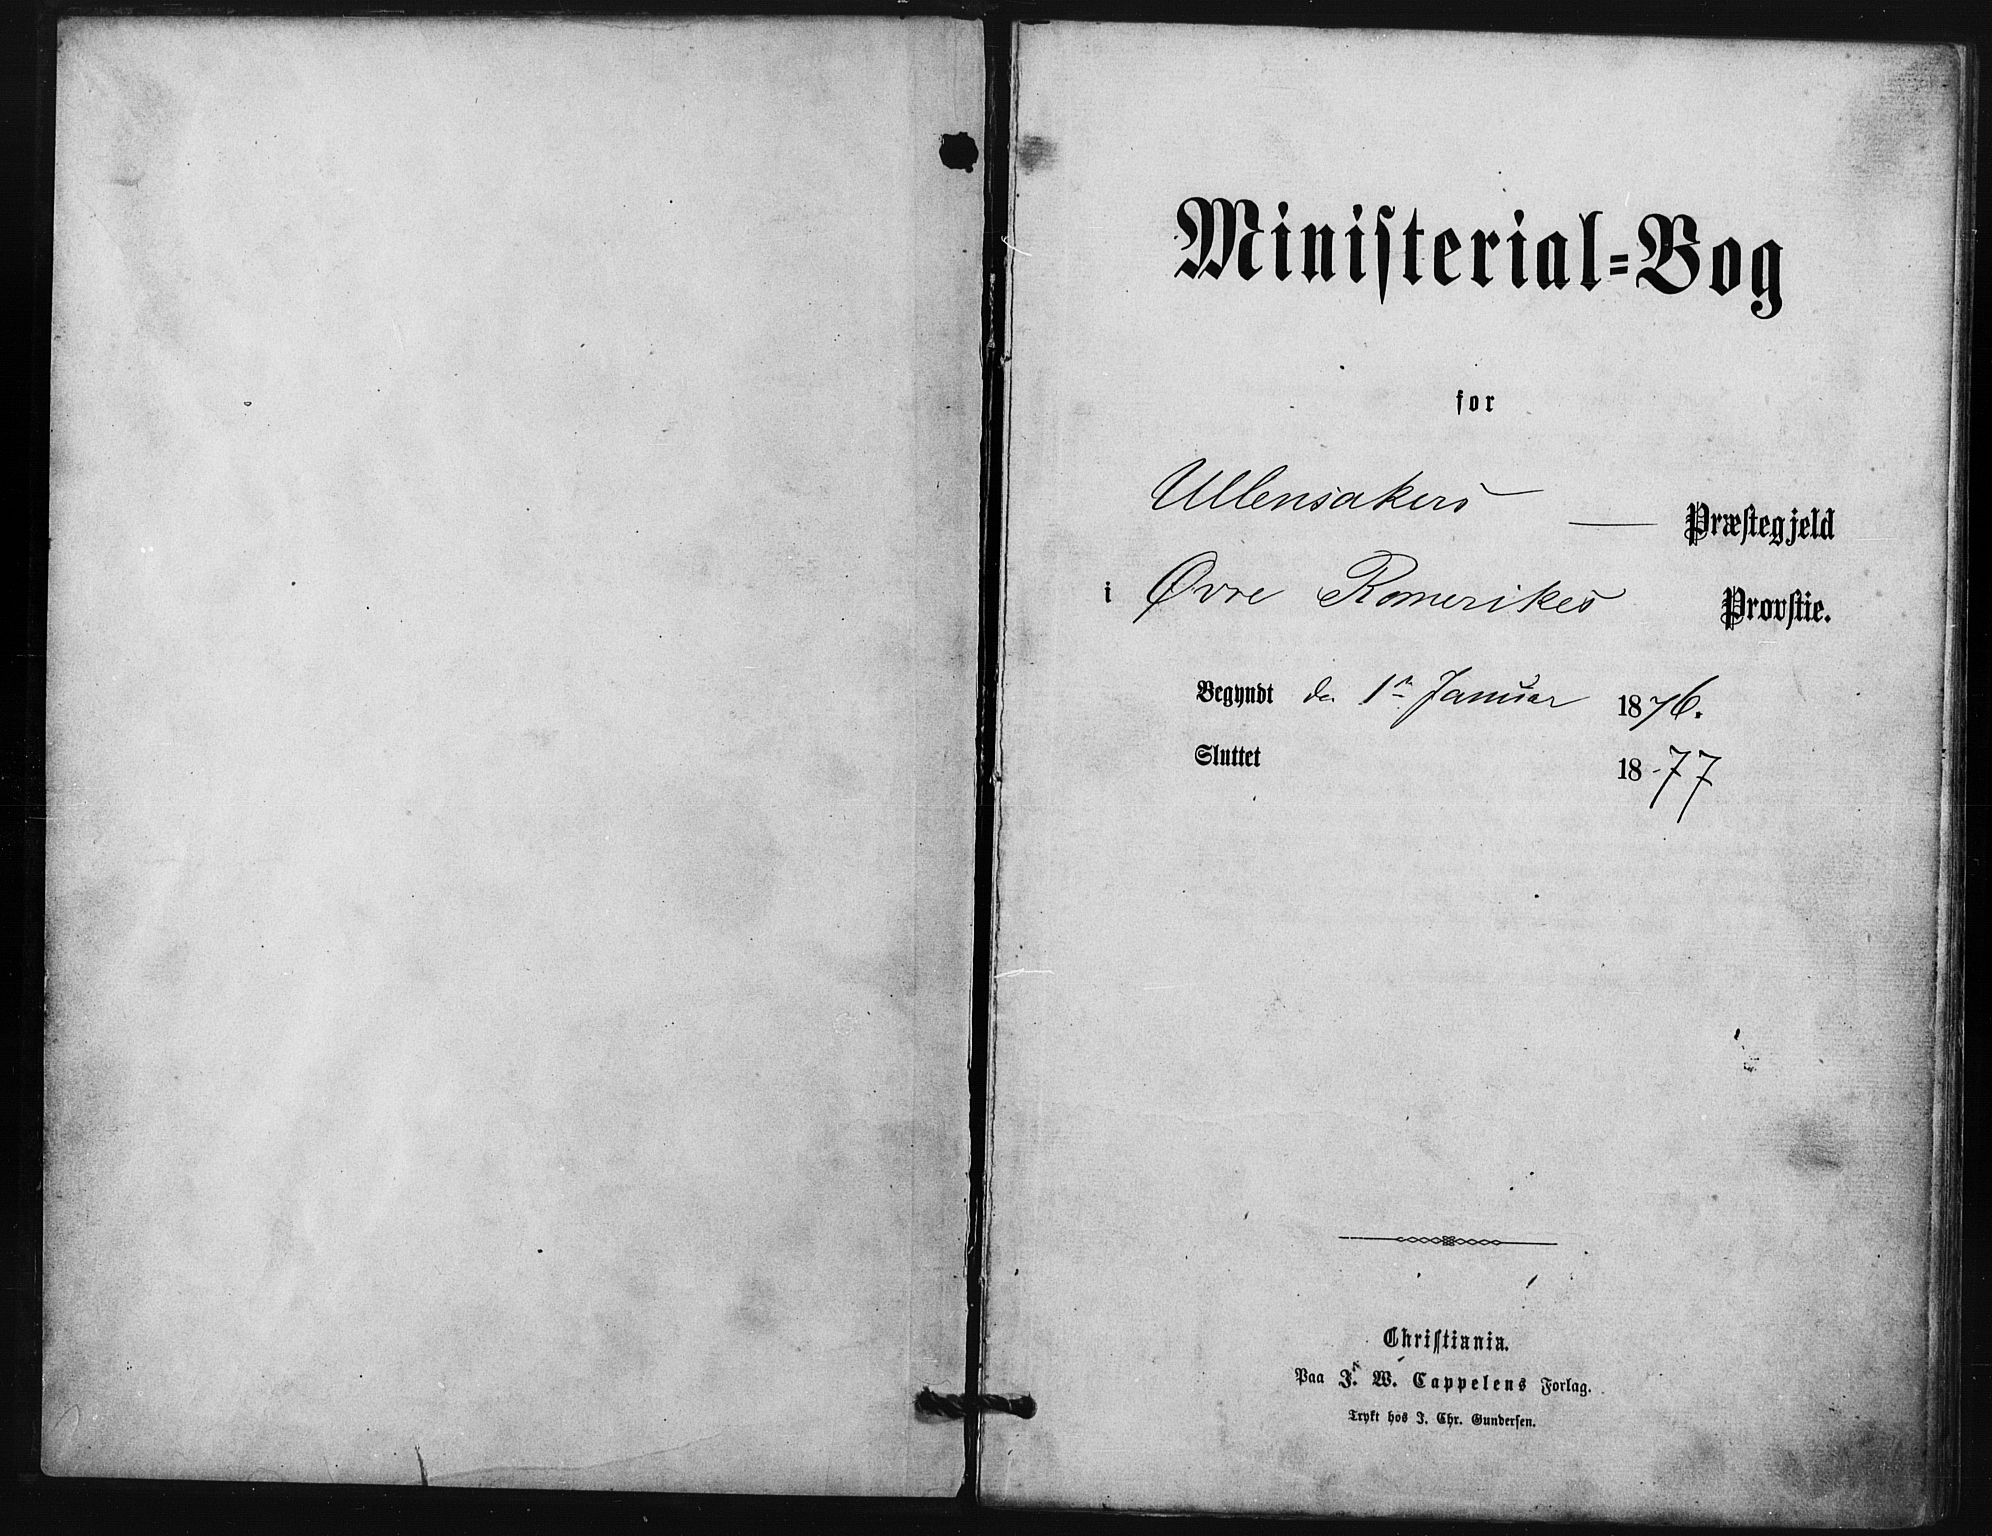 Ministerial=Bog
for
Ullensakers — Præstegjeld
i Øvre Romerikes Provstie.
Begyndt den 1ste Januar 1876.
Sluttet 18-77
Christiania.
Paa J. W. Cappelens Forlag.
Trykt hos J. Chr. Gundersen.